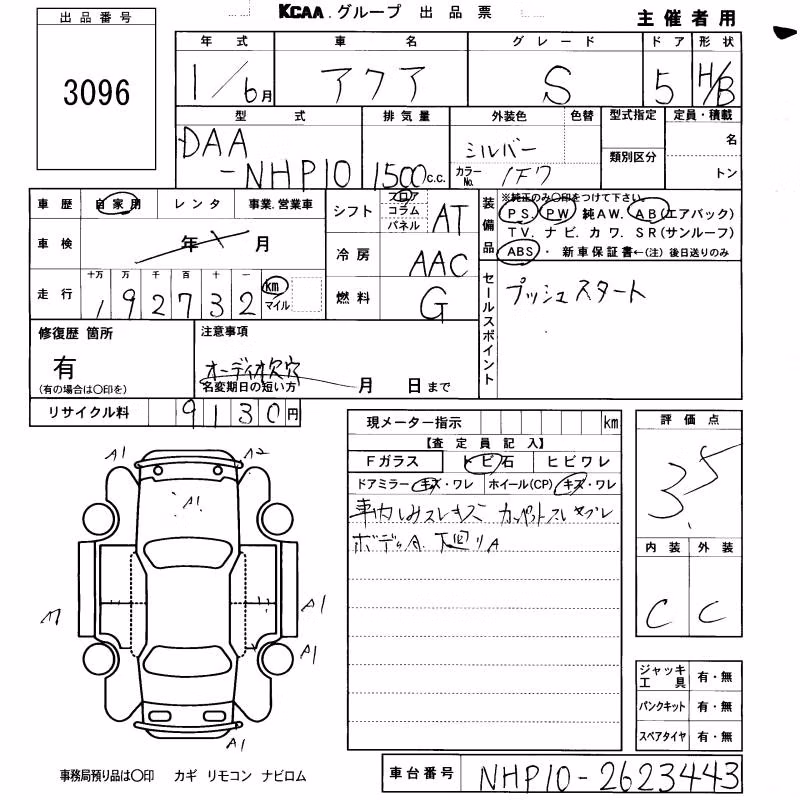 KCAA.グループ 出品票
主催者用
出品番号
3096
年式 車名 グレード ドア 形状
1/6月 アクア S 5 H/B
型式 排気量 外装色 色替 型式指定 定員・積載
DAA-NHP10 1500c.c. シルバー 名
カラーNo. 1F7 類別区分 トン
車歴 自家用 レンタ 事業.営業車
シフト フロア コラム パネル AT
装備品 ※純正のみ○印をつけて下さい。
PS. PW. 純AW. AB(エアバック)
TV. ナビ. カワ. SR(サンルーフ)
ABS・ 新車保証書←(注) 後日送りのみ
車検 年 月
冷房 AAC
走行 十万 万 千 百 十 一
192732 km マイル
燃料 G
セールスポイント プッシュスタート
修復歴 箇所
有
(有の場合は○印を)
注意事項
オーディオ欠穴
名変期日の短い方 月 日まで
リサイクル料 9130円
現メーター指示 km
【査定員記入】
Fガラス トビ石 ヒビワレ
ドアミラー キズ・ワレ ホイール(CP) キズ・ワレ
車内しみスレキズ カーペットスレヤブレ
ボディA. 下回りA
評価点
3.5
内装 外装
C C
A1 A2
A1
A1
A1
A1
ジャッキ工具 有・無
パンクキット 有・無
スペアタイヤ 有・無
事務局預り品は○印 カギ リモコン ナビロム
車台番号 NHP10-2623443